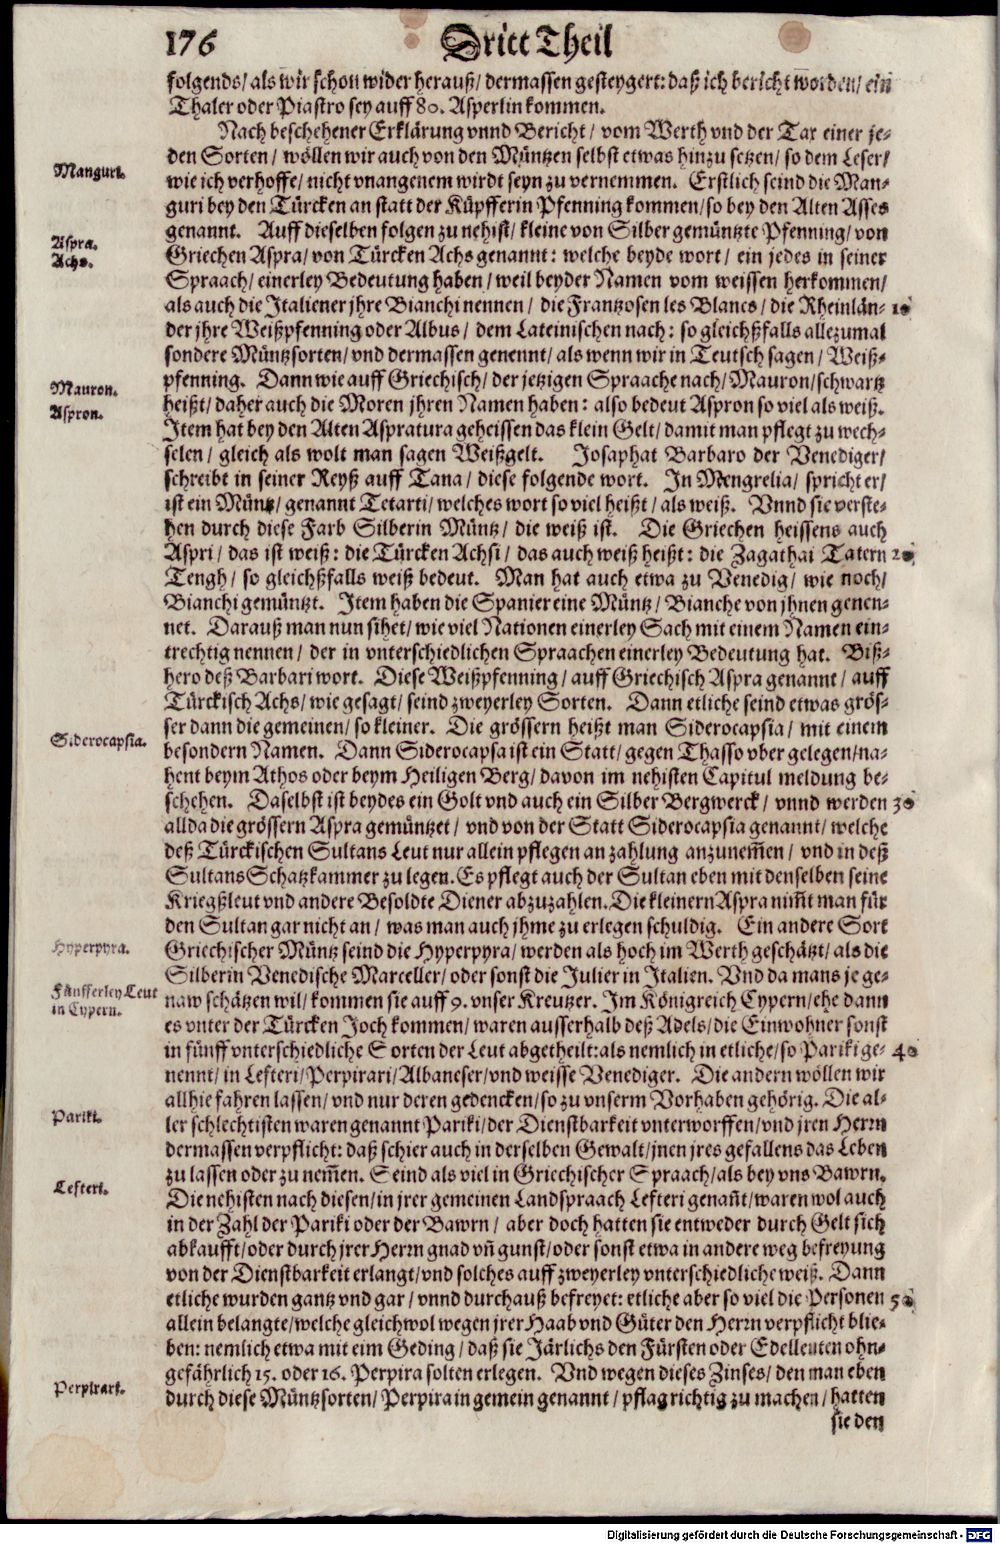 176 Dritt Theil
folgends/ als wir schon wider herauß/ dermassen gesteygert: daß ich bericht worden/ ein
Thaler oder Piastro sey auff 80. Asperlin kommen.
Nach beschehener Erklärung vnnd Bericht/ vom Werth vnd der Tax einer je-
den Sorten/ wöllen wir auch von den Müntzen selbst etwas hinzu setzen/ so dem Leser/
Manguri.
wie ich verhoffe/ nicht vnangenem wirdt seyn zu vernemmen. Erstlich seind die Man-
guri bey den Türcken an statt der Küpfferin Pfenning kommen/ so bey den Alten Asses
genannt. Auff dieselben folgen zu nehist/ kleine von Silber gemüntzte Pfenning/ von
Aspra.
Achs.
Griechen Aspra/ von Türcken Achs genannt: welche beyde wort/ ein jedes in seiner
Spraach/ einerley Bedeutung haben/ weil beyder Namen vom weissen herkommen/
als auch die Italiener jhre Bianchi nennen/ die Frantzosen les Blancs/ die Rheinlän- 10
der jhre Weißpfenning oder Albus/ dem Lateinischen nach: so gleichßfalls allezumal
sondere Müntzsorten/ vnd dermassen genennt/ als wenn wir in Teutsch sagen/ Weiß-
pfenning. Dann wie auff Griechisch/ der jetzigen Spraache nach/ Mauron/ schwartz
Mauron.
Aspron.
heißt/ daher auch die Moren jhren Namen haben: also bedeut Aspron so viel als weiß.
Item hat bey den Alten Aspratura geheissen das klein Gelt/ damit man pflegt zu wech-
selen/ gleich als wolt man sagen Weißgelt. Josaphat Barbaro der Venediger/
schreibt in seiner Reyß auff Tana/ diese folgende wort. In Mengrelia/ spricht er/
ist ein Müntz/ genannt Tetarti/ welches wort so viel heißt/ als weiß. Vnnd sie verste-
hen durch diese Farb Silberin Müntz/ die weiß ist. Die Griechen heissens auch
Aspri/ das ist weiß: die Türcken Achsi/ das auch weiß heißt: die Zagathai Tatern 20
Tengh/ so gleichßfalls weiß bedeut. Man hat auch etwa zu Venedig/ wie noch/
Bianchi gemüntzt. Item haben die Spanier eine Müntz/ Bianche von jhnen genen-
net. Darauß man nun sihet/ wie viel Nationen einerley Sach mit einem Namen ein-
trechtig nennen/ der in vnterschiedlichen Spraachen einerley Bedeutung hat. Biß-
hero deß Barbari wort. Diese Weißpfenning/ auff Griechisch Aspra genannt/ auff
Türckisch Achs/ wie gesagt/ seind zweyerley Sorten. Dann etliche seind etwas grös-
ser dann die gemeinen/ so kleiner. Die grössern heißt man Siderocapsia/ mit einem
Siderocapsia.
besondern Namen. Dann Siderocapsa ist ein Statt/ gegen Thasso vber gelegen/ na-
hent beym Athos oder beym Heiligen Berg/ davon im nehisten Capitul meldung be-
schehen. Daselbst ist beydes ein Golt vnd auch ein Silber Bergwerck/ vnnd werden 30
allda die grössern Aspra gemüntzet/ vnd von der Statt Siderocapsia genannt/ welche
deß Türckischen Sultans Leut nur allein pflegen an zahlung anzunem̃en/ vnd in deß
Sultans Schatzkammer zu legen. Es pflegt auch der Sultan eben mit denselben seine
Kriegßleut vnd andere Besoldte Diener abzuzahlen. Die kleinern Aspra nim̃t man für
den Sultan gar nicht an/ was man auch jhme zu erlegen schuldig. Ein andere Sort
Hyperpyra.
Griechischer Müntz seind die Hyperpyra/ werden als hoch im Werth geschätzt/ als die
Silberin Venedische Marceller/ oder sonst die Julier in Italien. Vnd da mans je ge-
Fünfferley Leut
in Cypern.
naw schätzen wil/ kommen sie auff 9. vnser Kreutzer. Im Königreich Cypern/ ehe dann
es vnter der Türcken Joch kommen/ waren ausserhalb deß Adels/ die Einwohner sonst
in fünff vnterschiedliche Sorten der Leut abgetheilt: als nemlich in etliche/ so Pariki ge- 40
nennt/ in Lefteri/ Perpirari/ Albaneser/ vnd weisse Venediger. Die andern wöllen wir
allhie fahren lassen/ vnd nur deren gedencken/ so zu vnserm Vorhaben gehörig. Die al-
Pariki.
ler schlechtisten waren genannt Pariki/ der Dienstbarkeit vnterworffen/ vnd jren Herrn
dermassen verpflicht: daß schier auch in derselben Gewalt/ jnen jres gefallens das Leben
zu lassen oder zu nem̃en. Seind als viel in Griechischer Spraach/ als bey vns Bawrn.
Lefteri.
Die nehisten nach diesen/ in jrer gemeinen Landspraach Lefteri genañt/ waren wol auch
in der Zahl der Pariki oder der Bawrn/ aber doch hatten sie entweder durch Gelt sich
abkaufft/ oder durch jrer Herrn gnad vñ gunst/ oder sonst etwa in andere weg befreyung
von der Dienstbarkeit erlangt/ vnd solches auff zweyerley vnterschiedliche weiß. Dann
etliche wurden gantz vnd gar/ vnnd durchauß befreyet: etliche aber so viel die Personen 50
allein belangte/ welche gleichwol wegen jrer Haab vnd Güter den Herrn verpflicht blie-
ben: nemlich etwa mit eim Geding/ daß sie Järlichs den Fürsten oder Edelleuten ohn-
gefährlich 15. oder 16. Perpira solten erlegen. Vnd wegen dieses Zinses/ den man eben
Perpirari.
durch diese Müntzsorten/ Perpira in gemein genannt/ pflag richtig zu machen/ hatten
sie den
Digitalisierung gefördert durch die Deutsche Forschungsgemeinschaft - DFG